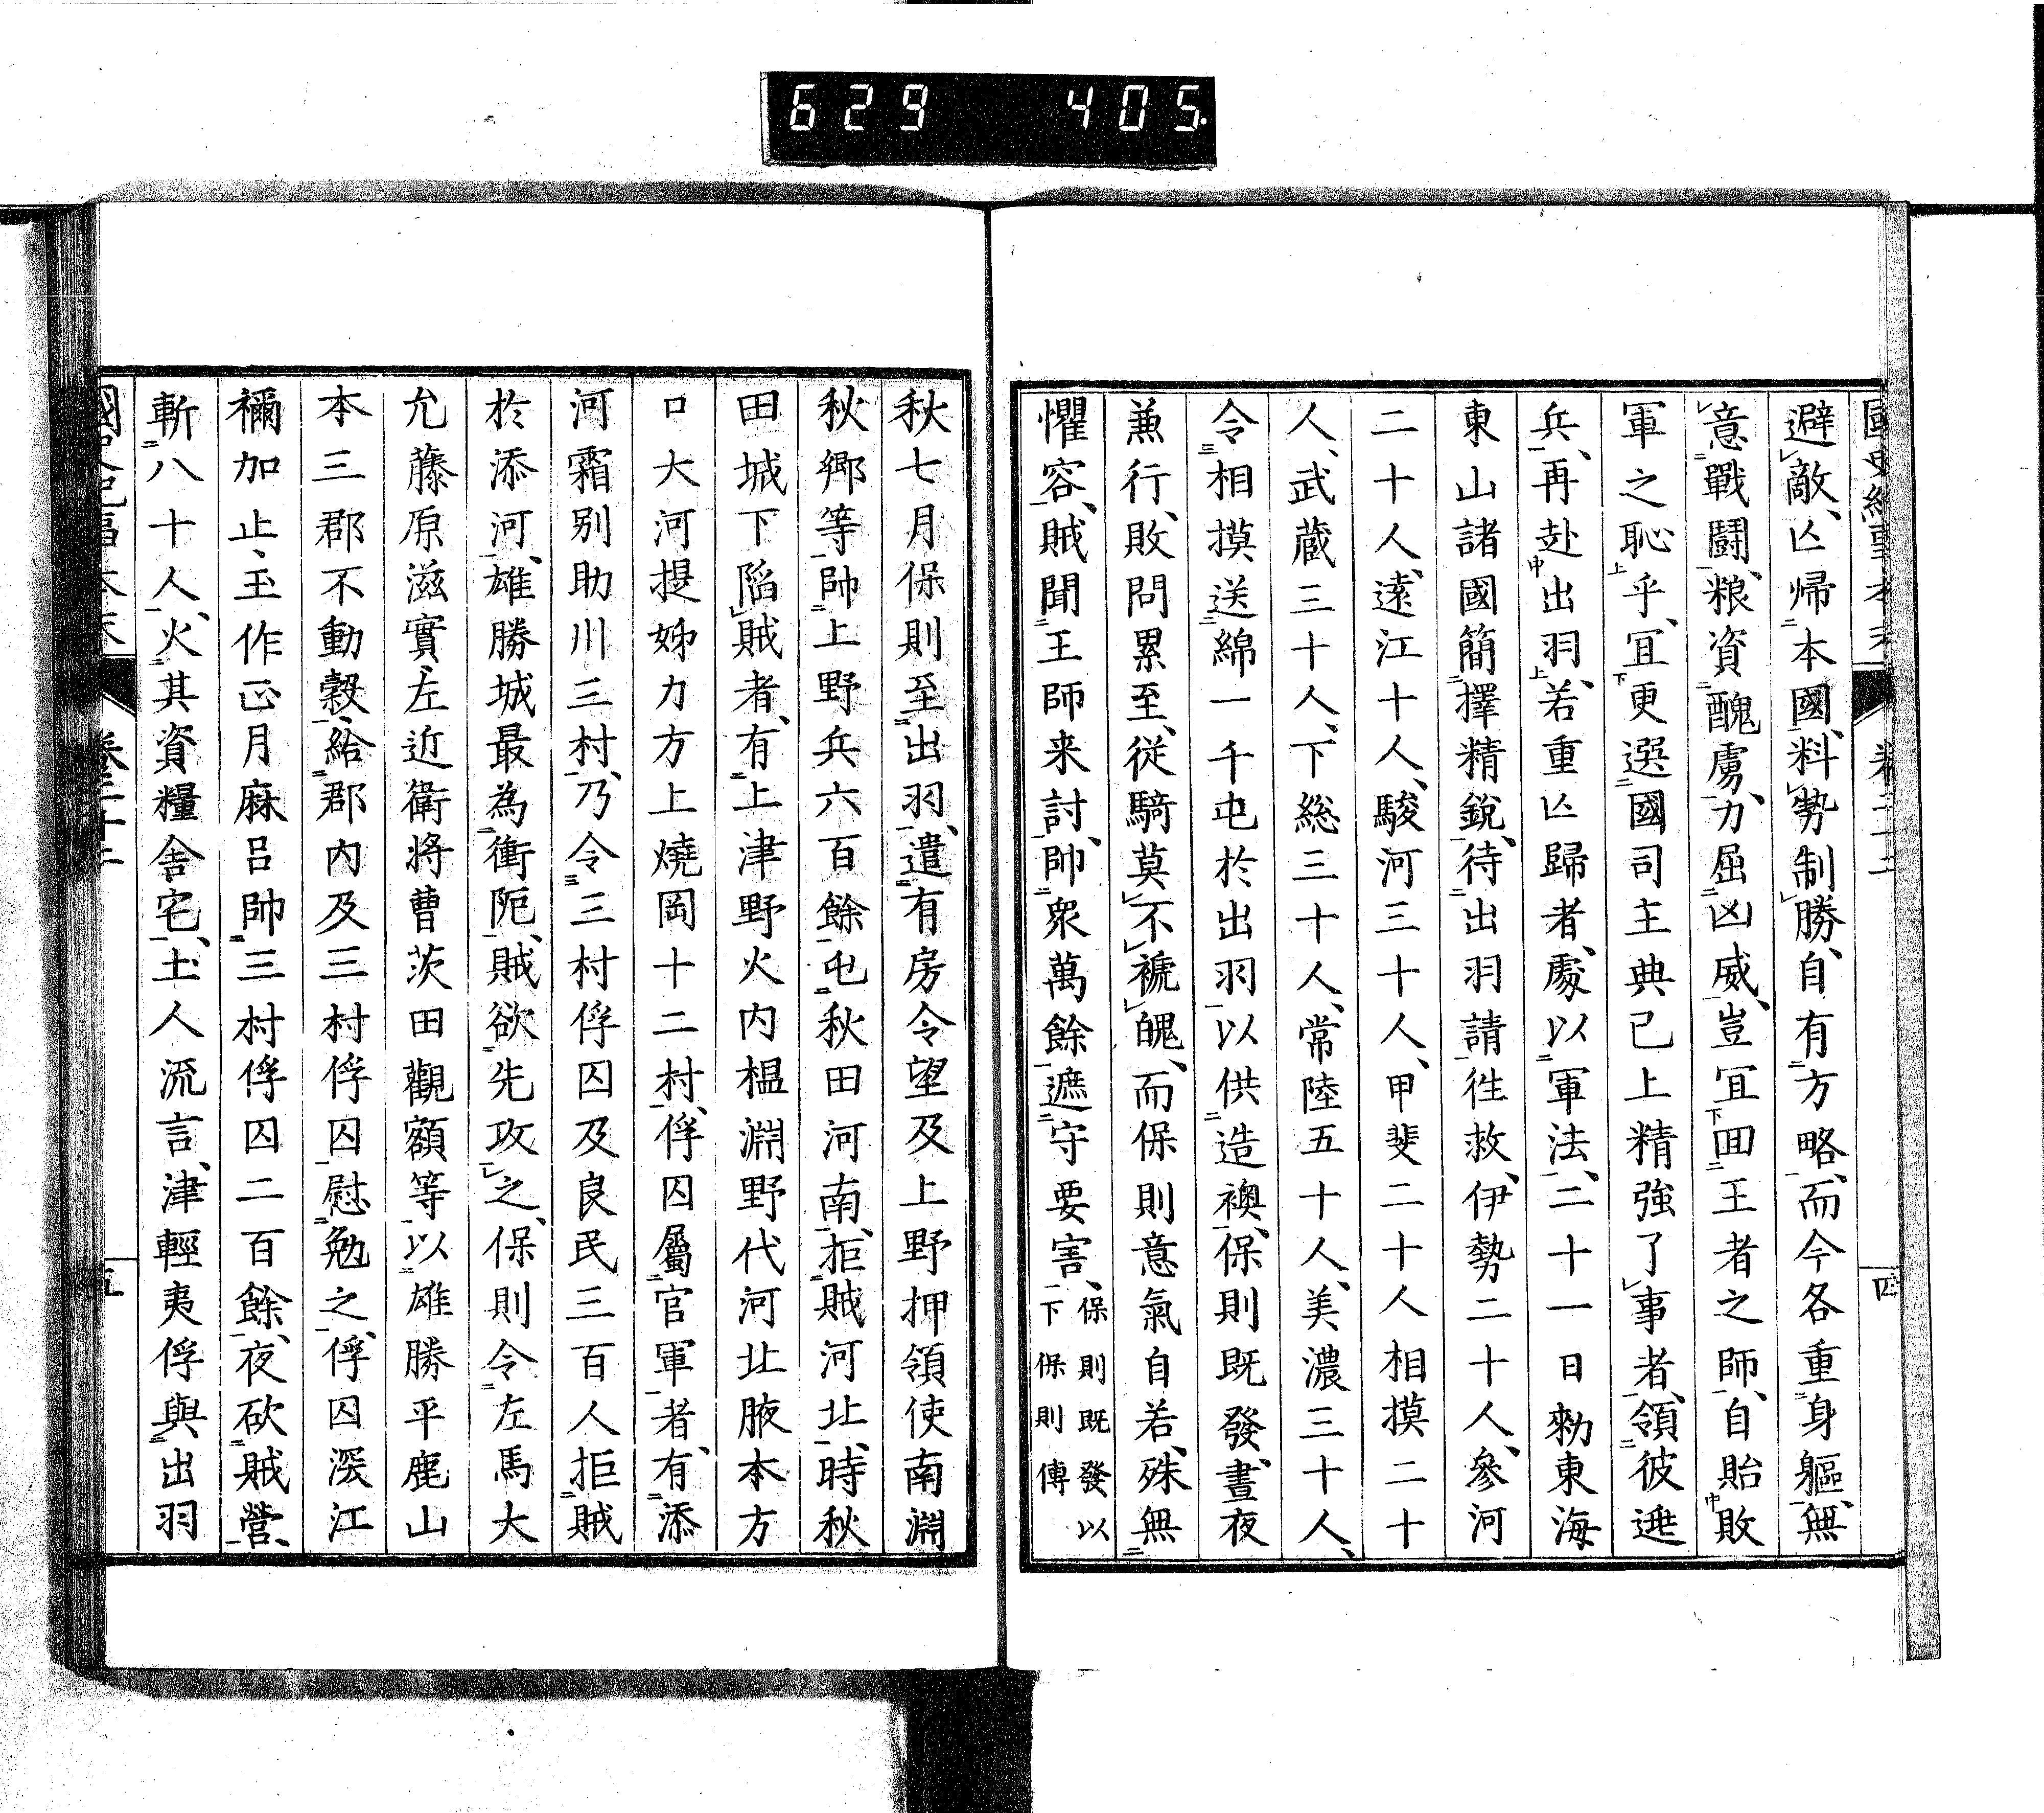 629 405.
避敵、亾帰本國、料勢制勝、自有方略、而今各重身軀、無
意戰鬪、粮資醜虜、力屈凶威、豈宜囬王者之師、自貽敗
軍之恥乎、宜更選國司主典已上精強了事者、領彼逃
兵、再赴出羽、若重亾歸者、處以軍法、二十一日勑東海
東山諸國簡擇精銳、待出羽請徃救、伊勢二十人、參河
二十人、遠江十人、駿河三十人、甲斐二十人相摸二十
人、武蔵三十人、下総三十人、常陸五十人、美濃三十人、
令相摸送綿一千屯於出羽以供造襖、保則既發、晝夜
兼行、敗問累至、従騎莫不褫魄、而保則意氣自若、殊無
懼容、賊聞王師来討、帥衆萬餘遮守要害、保則既發以下保則傳
秋七月保則至出羽、遣有房令望及上野押領使南淵
秋郷等帥上野兵六百餘屯秋田河南、拒賊河北、時秋
田城下陷賊者、有上津野火内榲淵野代河北腋本方
口大河提姊刀方上燒岡十二村、俘囚屬官軍者、有添
河霜别助川三村、乃令三村俘囚及良民三百人拒賊
於添河、雄勝城最為衝阨、賊欲先攻之、保則令左馬大
允藤原滋實、左近衛将曹茨田觀額等以雄勝平鹿山
本三郡不動穀、給郡内及三村俘囚慰勉之、俘囚深江
禰加止、玉作正月麻呂帥三村俘囚二百餘、夜砍賊營、
斬八十人、火其資糧舎宅、土人流言、津輕夷俘與出羽